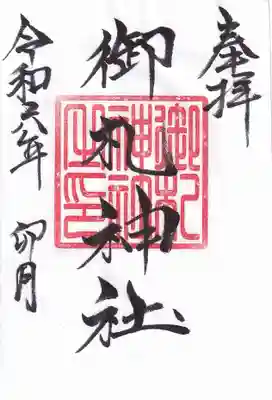 奉拝
御札神社
令和六年
卯月